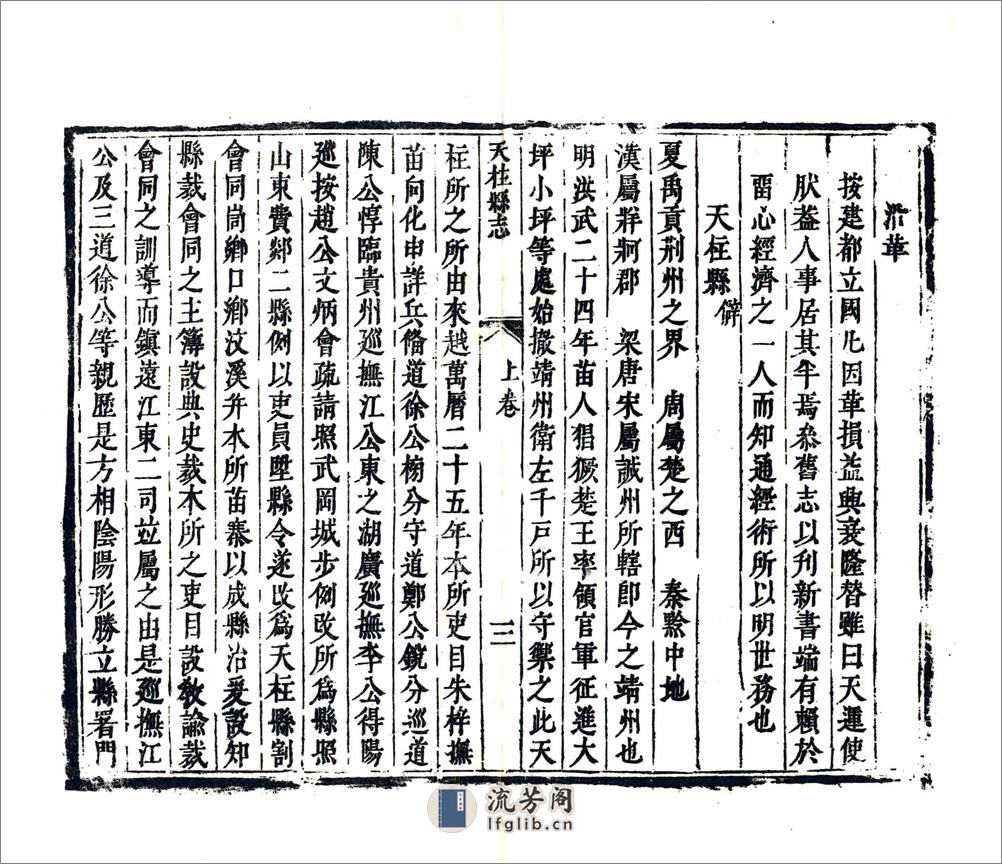 沿革
按建都立國凡因革損益興衰隆替雖曰天運使
肰葢人事居其半焉叅舊志以刋新書端有賴於
畱心經濟之一人而知通經術所以明世務也
天柱縣 僻
夏禹貢荆州之界 周屬楚之西 秦黔中地
漢屬牂牁郡 梁唐宋屬誠州所轄即今之靖州也
明洪武二十四年苗人猖獗楚王率領官軍征進大
坪小坪等處始撤靖州衛左千戸所以守禦之此天
天柱縣志 上卷 三
柱所之所由來越萬曆二十五年本所吏目朱梓撫
苗向化申詳兵備道徐公榜分守道鄭公鏡分巡道
陳公惇臨貴州巡撫江公東之湖廣巡撫李公得陽
巡按趙公文炳會疏請照武岡城步例改所爲縣照
山東費郯二縣例以吏員陞縣令遂改爲天柱縣割
會同峝鄉口鄉汶溪并本所苗寨以成縣治爰設知
縣裁會同之主簿設典史裁本所之吏目設敎諭裁
會同之訓導而鎮遠江東二司竝屬之由是巡撫江
公及三道徐公等親歷是方相陰陽形勝立縣署門
流芳阁
lfglib.cn